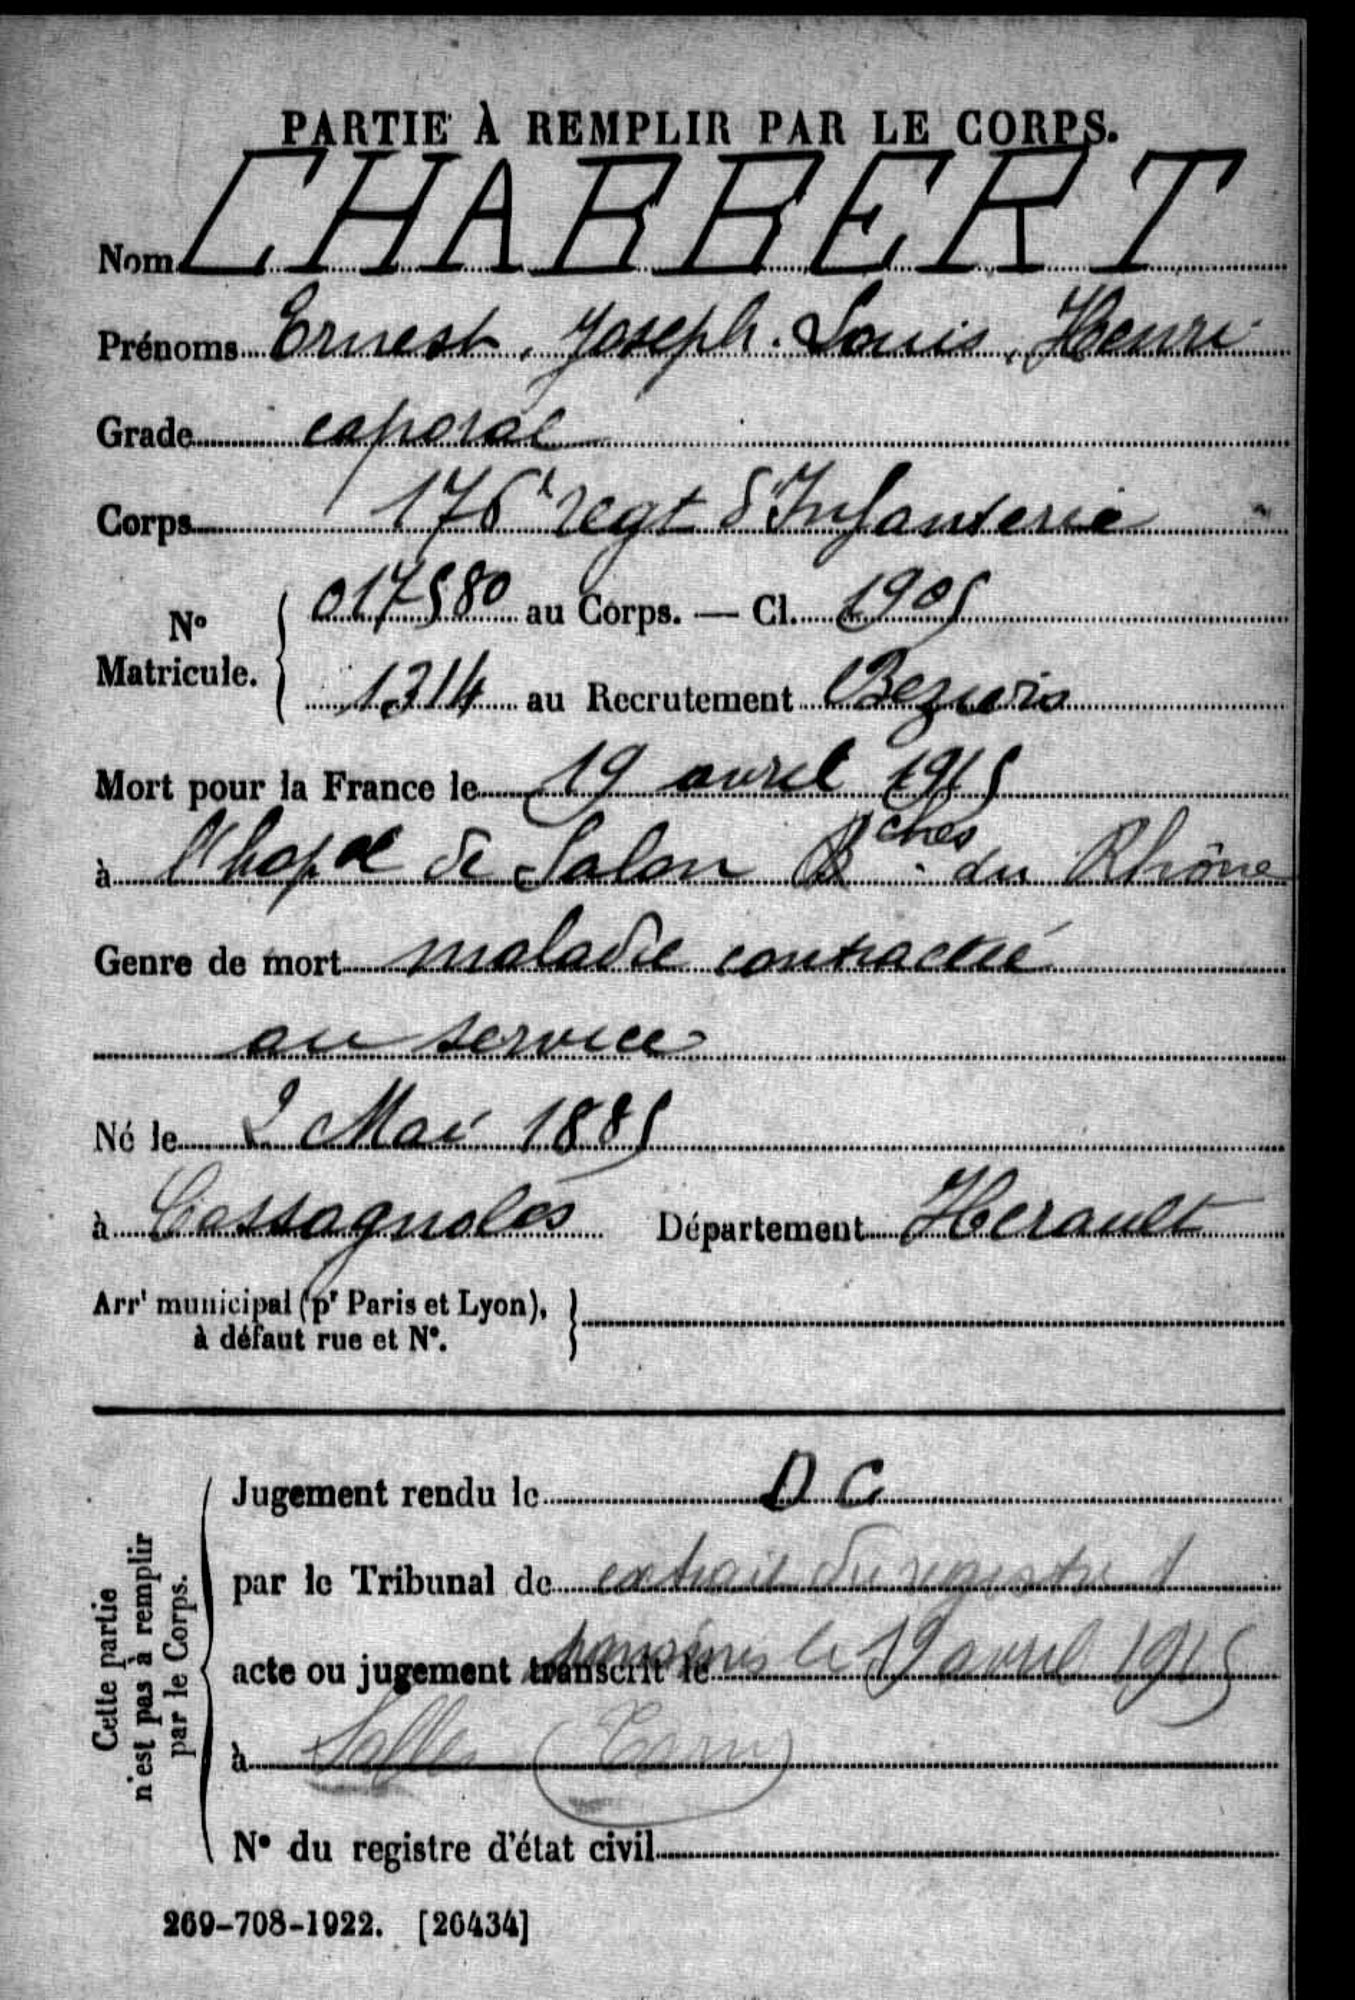 PARTIE À REMPLIR PAR LE CORPS.
Nom CHABBERT
Prénoms Ernest, Joseph. Louis, Henri
Grade caporal
Corps 176e regt d'Infanterie
N° Matricule. 017580 au Corps. — Cl. 1905
1314 au Recrutement Beziers
Mort pour la France le 19 avril 1915
à l'hopal de Salon Bches du Rhône
Genre de mort maladie contractée
au service
Né le 2 Mai 1885
à Cassagnoles Département Herault
Arrt municipal (pr Paris et Lyon),
à défaut rue et N°.
Cette partie
n'est pas à remplir
par le Corps.
Jugement rendu le D C
par le Tribunal de extrait du registre
acte ou jugement transcrit le le 19 avril 1915
à Salles (Tarn)
N° du registre d'état civil
269-708-1922. [26434]